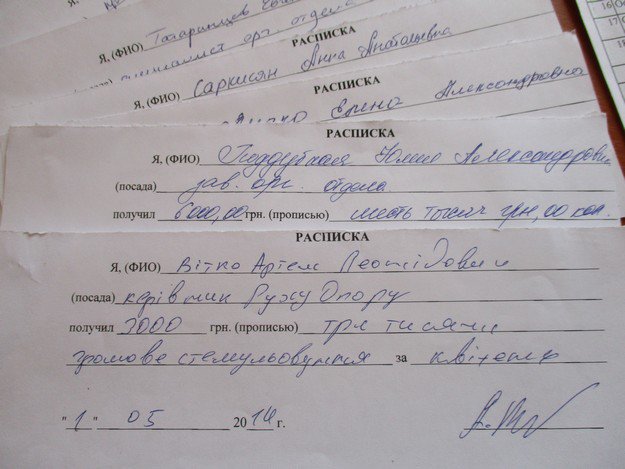 Я, (ФИО) Татаринцев
специалист орг. отдела
РАСПИСКА
Я, (ФИО) Саркисян Анна Анатольевна
РАСПИСКА
Ирина Александровна
РАСПИСКА
Я, (ФИО) Поддубная Юлия Александровна
(посада) зав. орг. отдела
получил 6000,00 грн. (прописью) шесть тысяч грн, 00 коп.
РАСПИСКА
Я, (ФИО) Вітко Артем Леонідович
(посада) керівник Руху Опору
получил 3000 грн. (прописью) три тисячи
грошове стемульовання за квітень
"1" 05 2014 г.
16
17
18